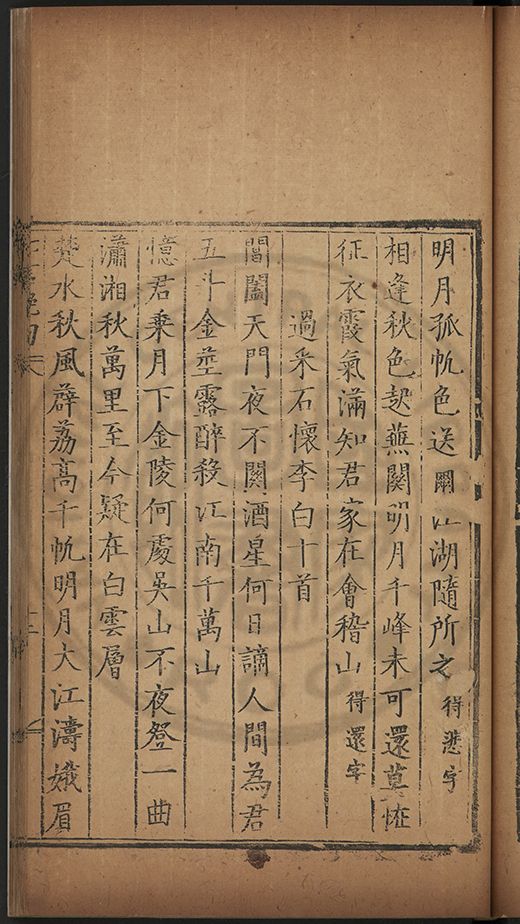 明月孤帆色送爾江湖隨所之 得悲字
相逢秋色起蕪關明月千峰未可還莫怪
征衣霞氣滿知君家在會稽山 得還字
過采石懷李白十首
閶闔天門夜不關酒星何日謫人間為君
五斗金莖露醉殺江南千萬山
憶君乘月下金陵何處吳山不夜登一曲
瀟湘秋萬里至今疑在白雲層
楚水秋風薜荔高千帆明月大江濤娥眉
七言絕句